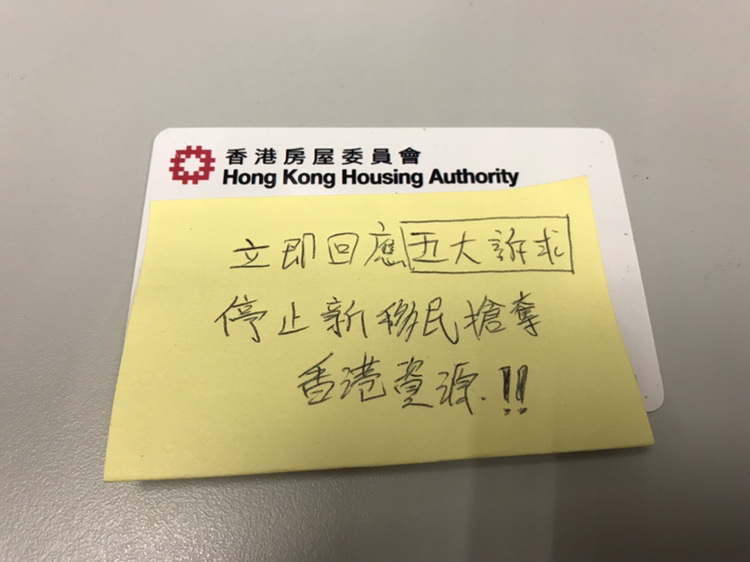 香港房屋委員會
Hong Kong Housing Authority
立即回應五大訴求
停止新移民搶奪
香港資源.!!